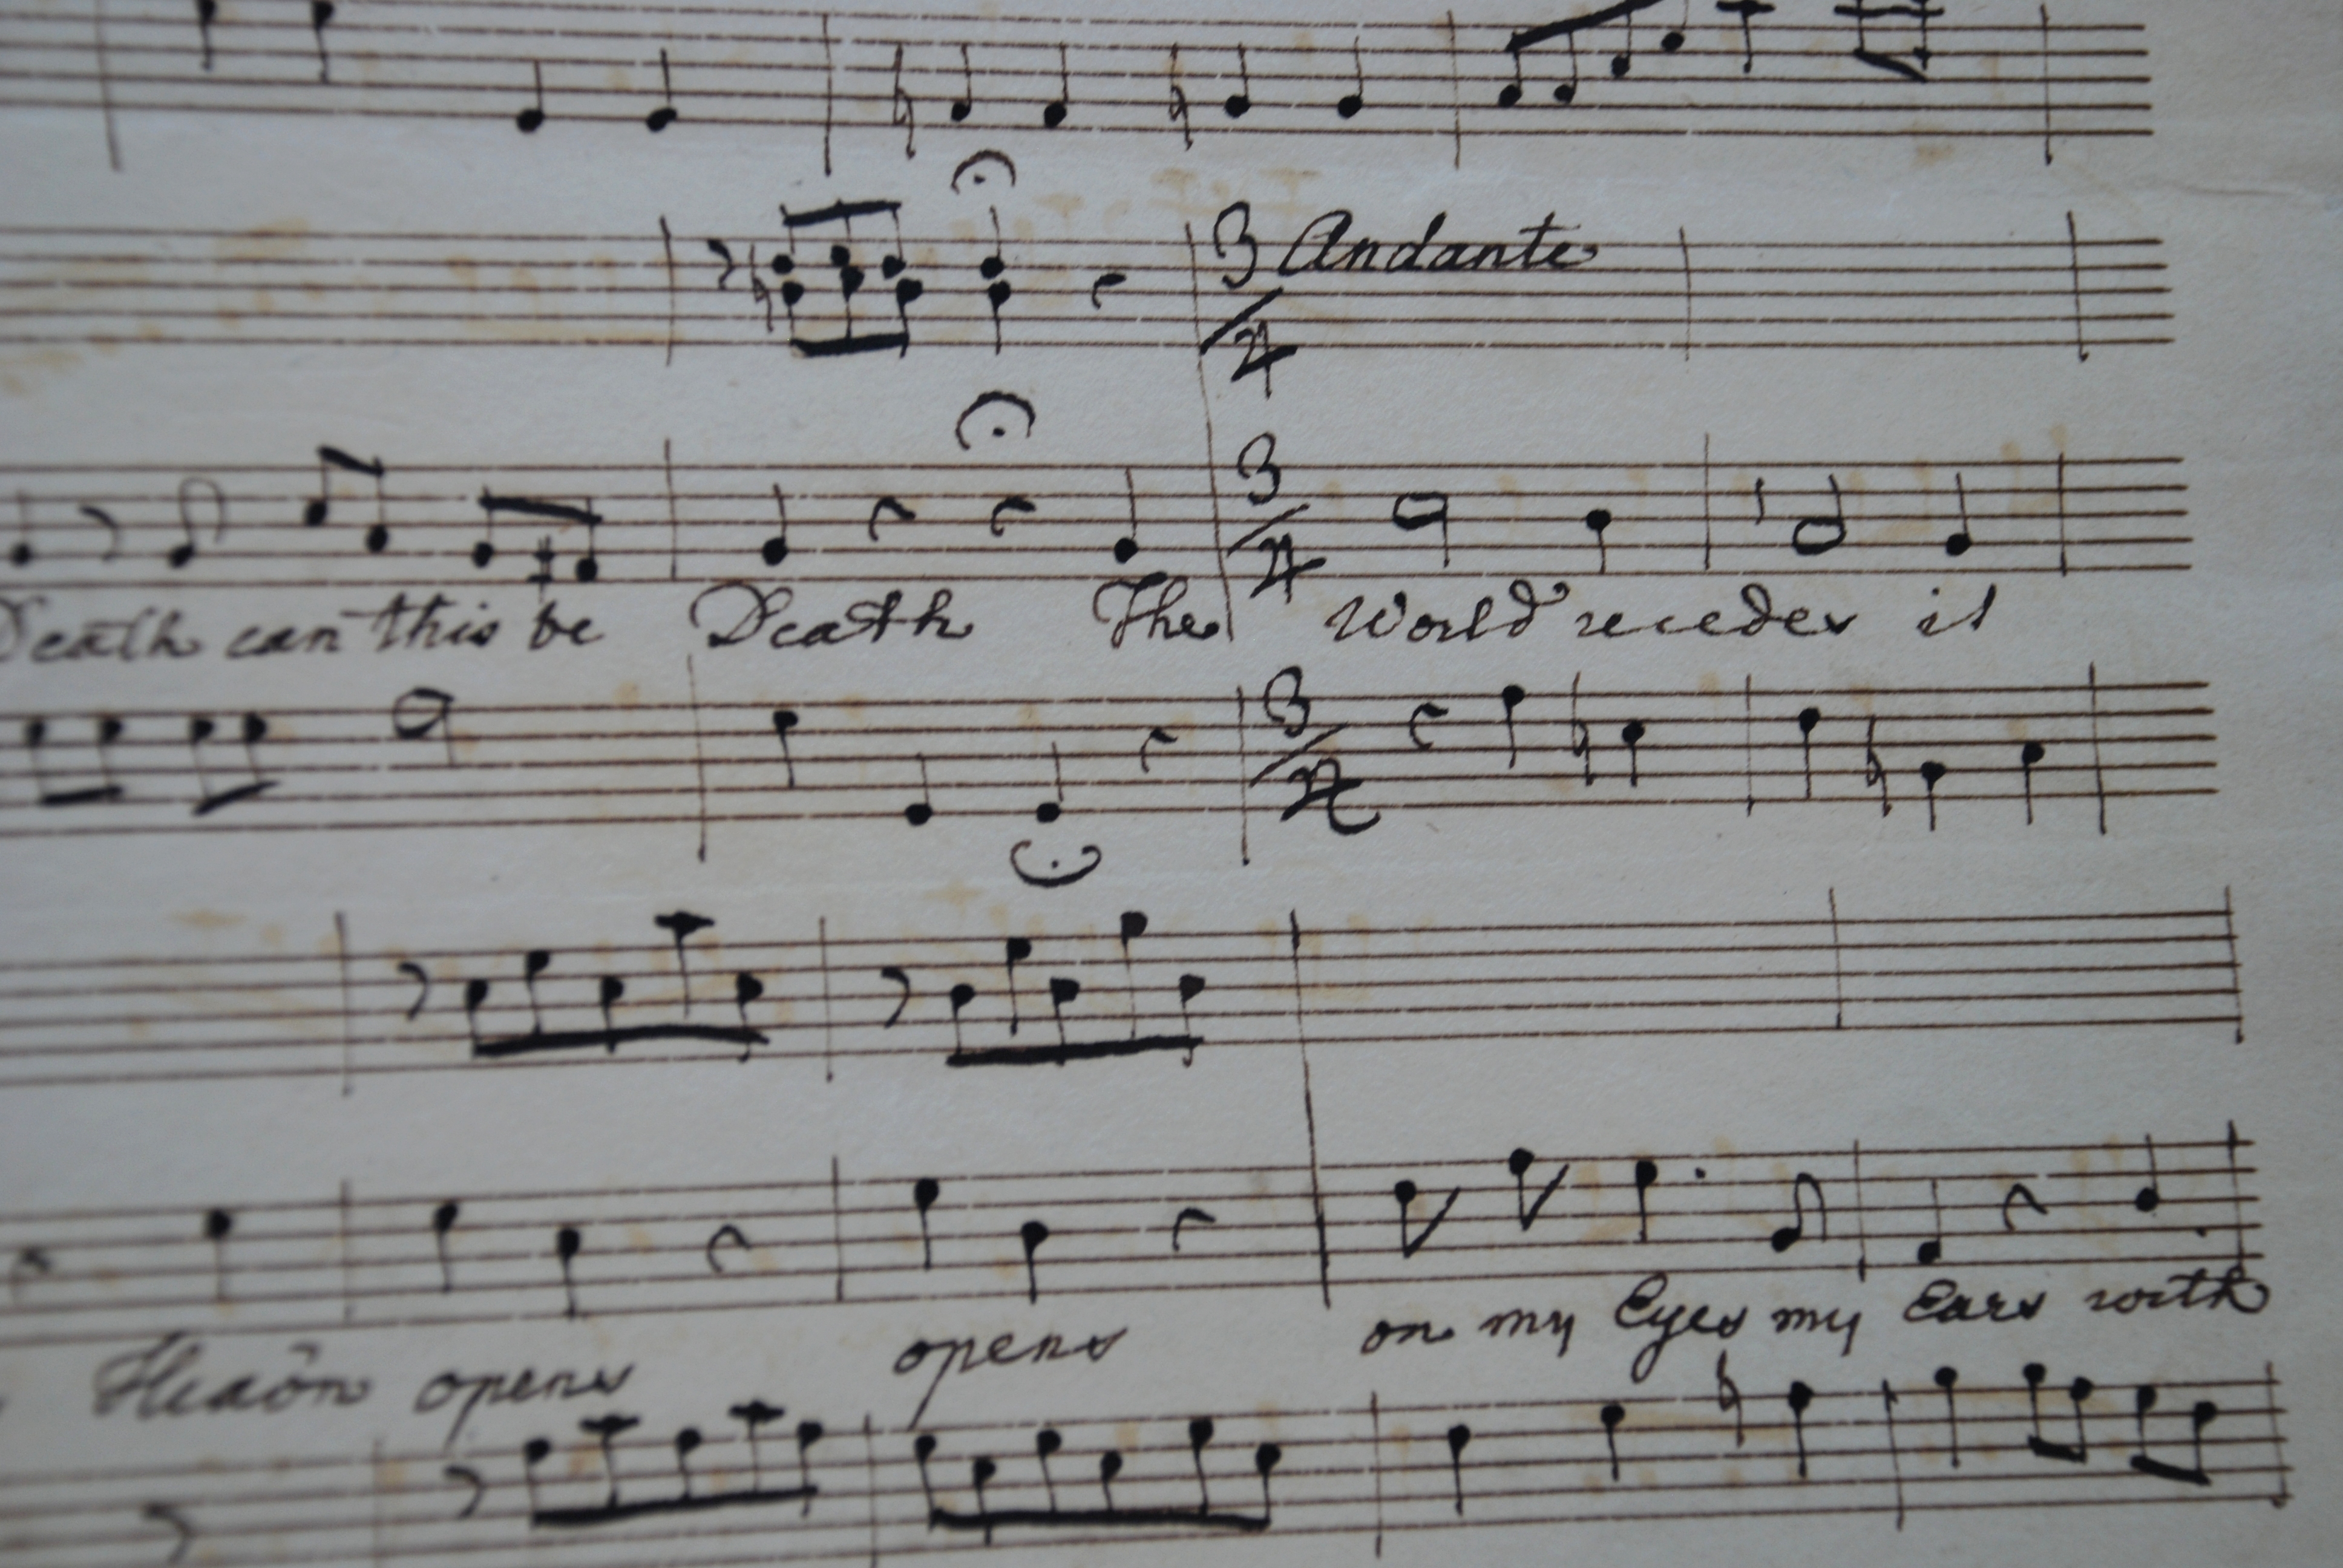 3/4 Andante
3/4
Death can this be Death The World recedes it
3/4
Heav̄n opens opens on my Eyes my Ears with